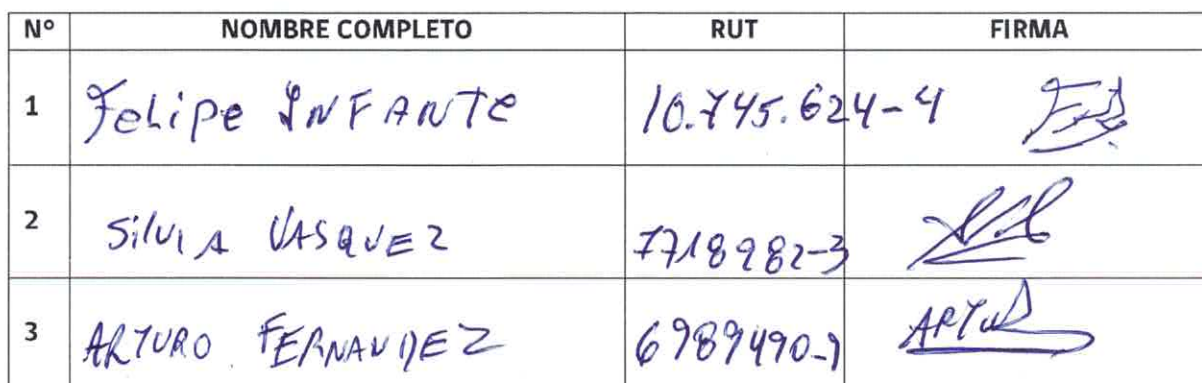 N° NOMBRE COMPLETO RUT FIRMA
1 Felipe INFANTE 10.745.624-4
2 Silvia VASQUEZ 7718982-3
3 ARTURO FERNANDEZ 6989490-9 ARTU